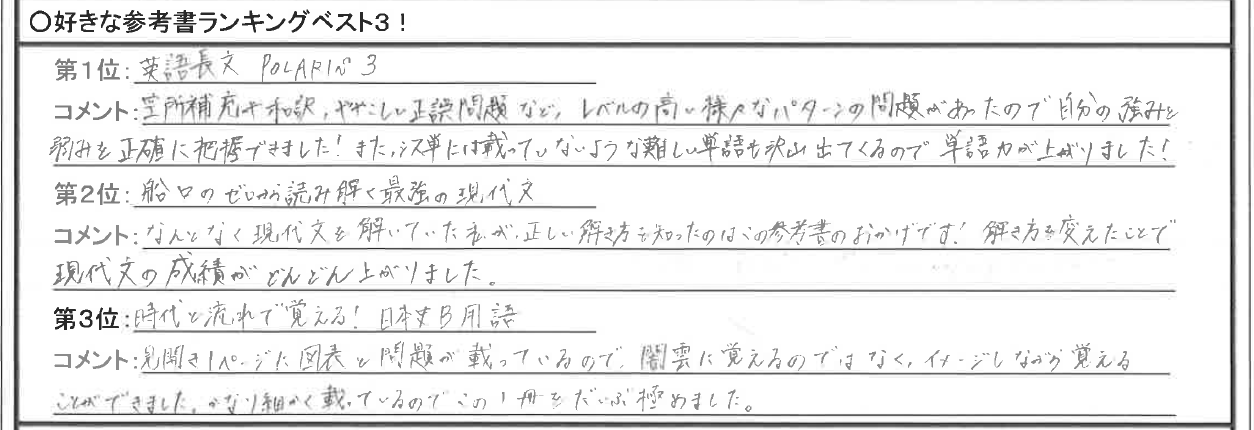 〇好きな参考書ランキングベスト3!
第1位:英語長文 POLARIS 3
コメント:空所補充や和訳,ややこしい正誤問題など,レベルの高い様々なパターンの問題があったので自分の強みと
弱みを正確に把握できました!また,シス単には載っていないような難しい単語も沢山出てくるので単語力が上がりました!
第2位:船口のゼロから読み解く最強の現代文
コメント:なんとなく現代文を解いていた私が,正しい解き方を知ったのはこの参考書のおかげです!解き方を変えたことで
現代文の成績がどんどん上がりました。
第3位:時代と流れで覚える!日本史B用語
コメント:見開き1ページに図表と問題が載っているので,闇雲に覚えるのではなく,イメージしながら覚える
ことができました。かなり細かく載っているのでこの1冊をだいぶ極めました。